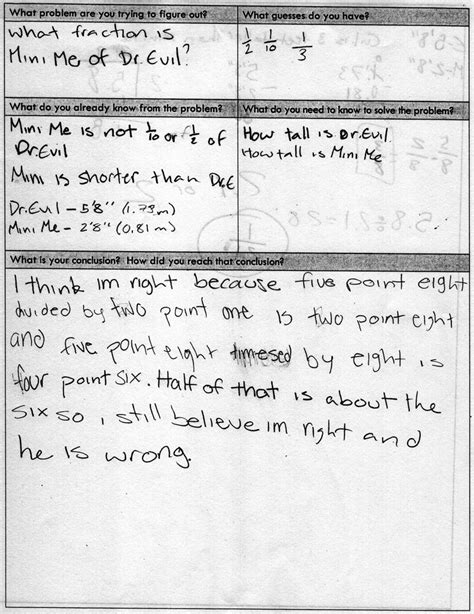 What problem are you trying to figure out?
What fraction is
Mini Me of Dr. Evil?
What guesses do you have?
1/2 1/10 1/3
What do you already know from the problem?
Mini Me is not 1/10 or 1/2 of
Dr. Evil
Mini is shorter than Dr.E
Dr. Evil - 5'8" (1.73 m)
Mini Me - 2'8" (0.81 m)
What do you need to know to solve the problem?
How tall is Dr. Evil
How tall is Mini Me
What is your conclusion? How did you reach that conclusion?
I think im right because five point eight
divided by two point one is two point eight
and five point eight timesed by eight is
four point six. Half of that is about the
six so i still believe im right and
he is wrong.